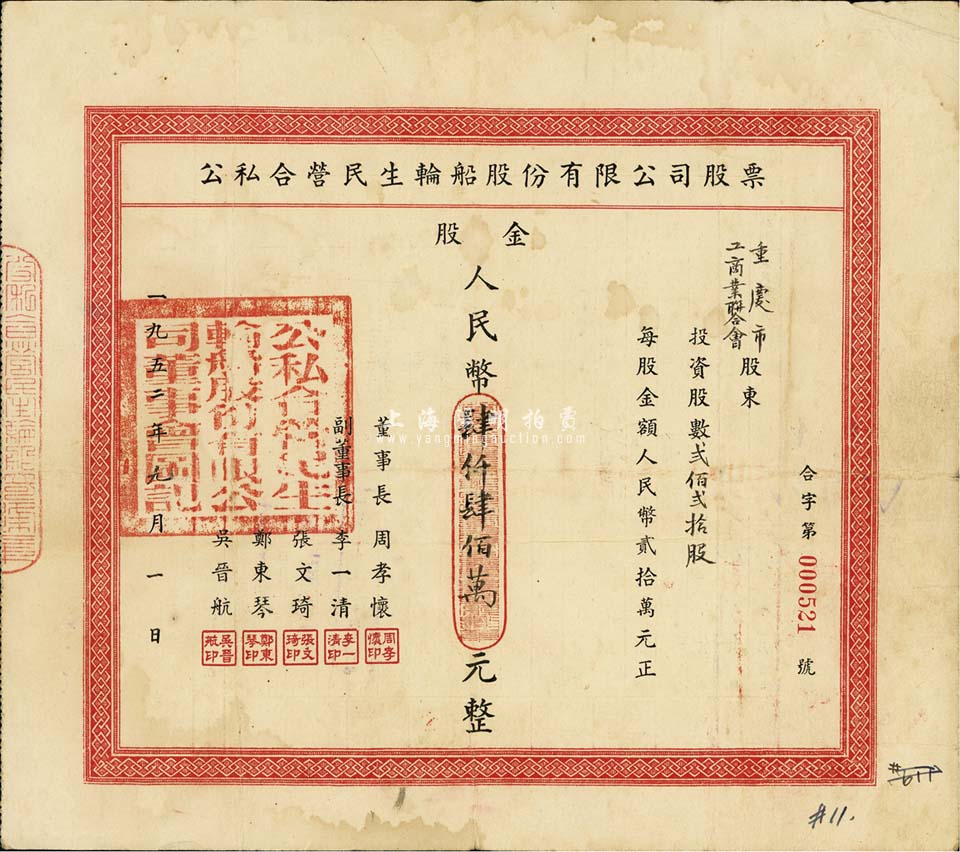 公私合營民生輪船股份有限公司股票
合字第000521號
重慶市
工商業聯合會
股東
投資股數弍佰弍拾股
每股金額人民幣貳拾萬元正
股金
人民幣肆仟肆佰萬元整
董事長 周孝懷
副董事長 李一清
張文琦
鄭東琴
吳晉航
周孝懷印
李一清印
張文琦印
鄭東琴印
吳晉航印
一九五二年九月一日
公私合營民生輪船股份有限公司董事會圖記
上海陽明拍賣
www.yangmingauction.com
#611
#11.